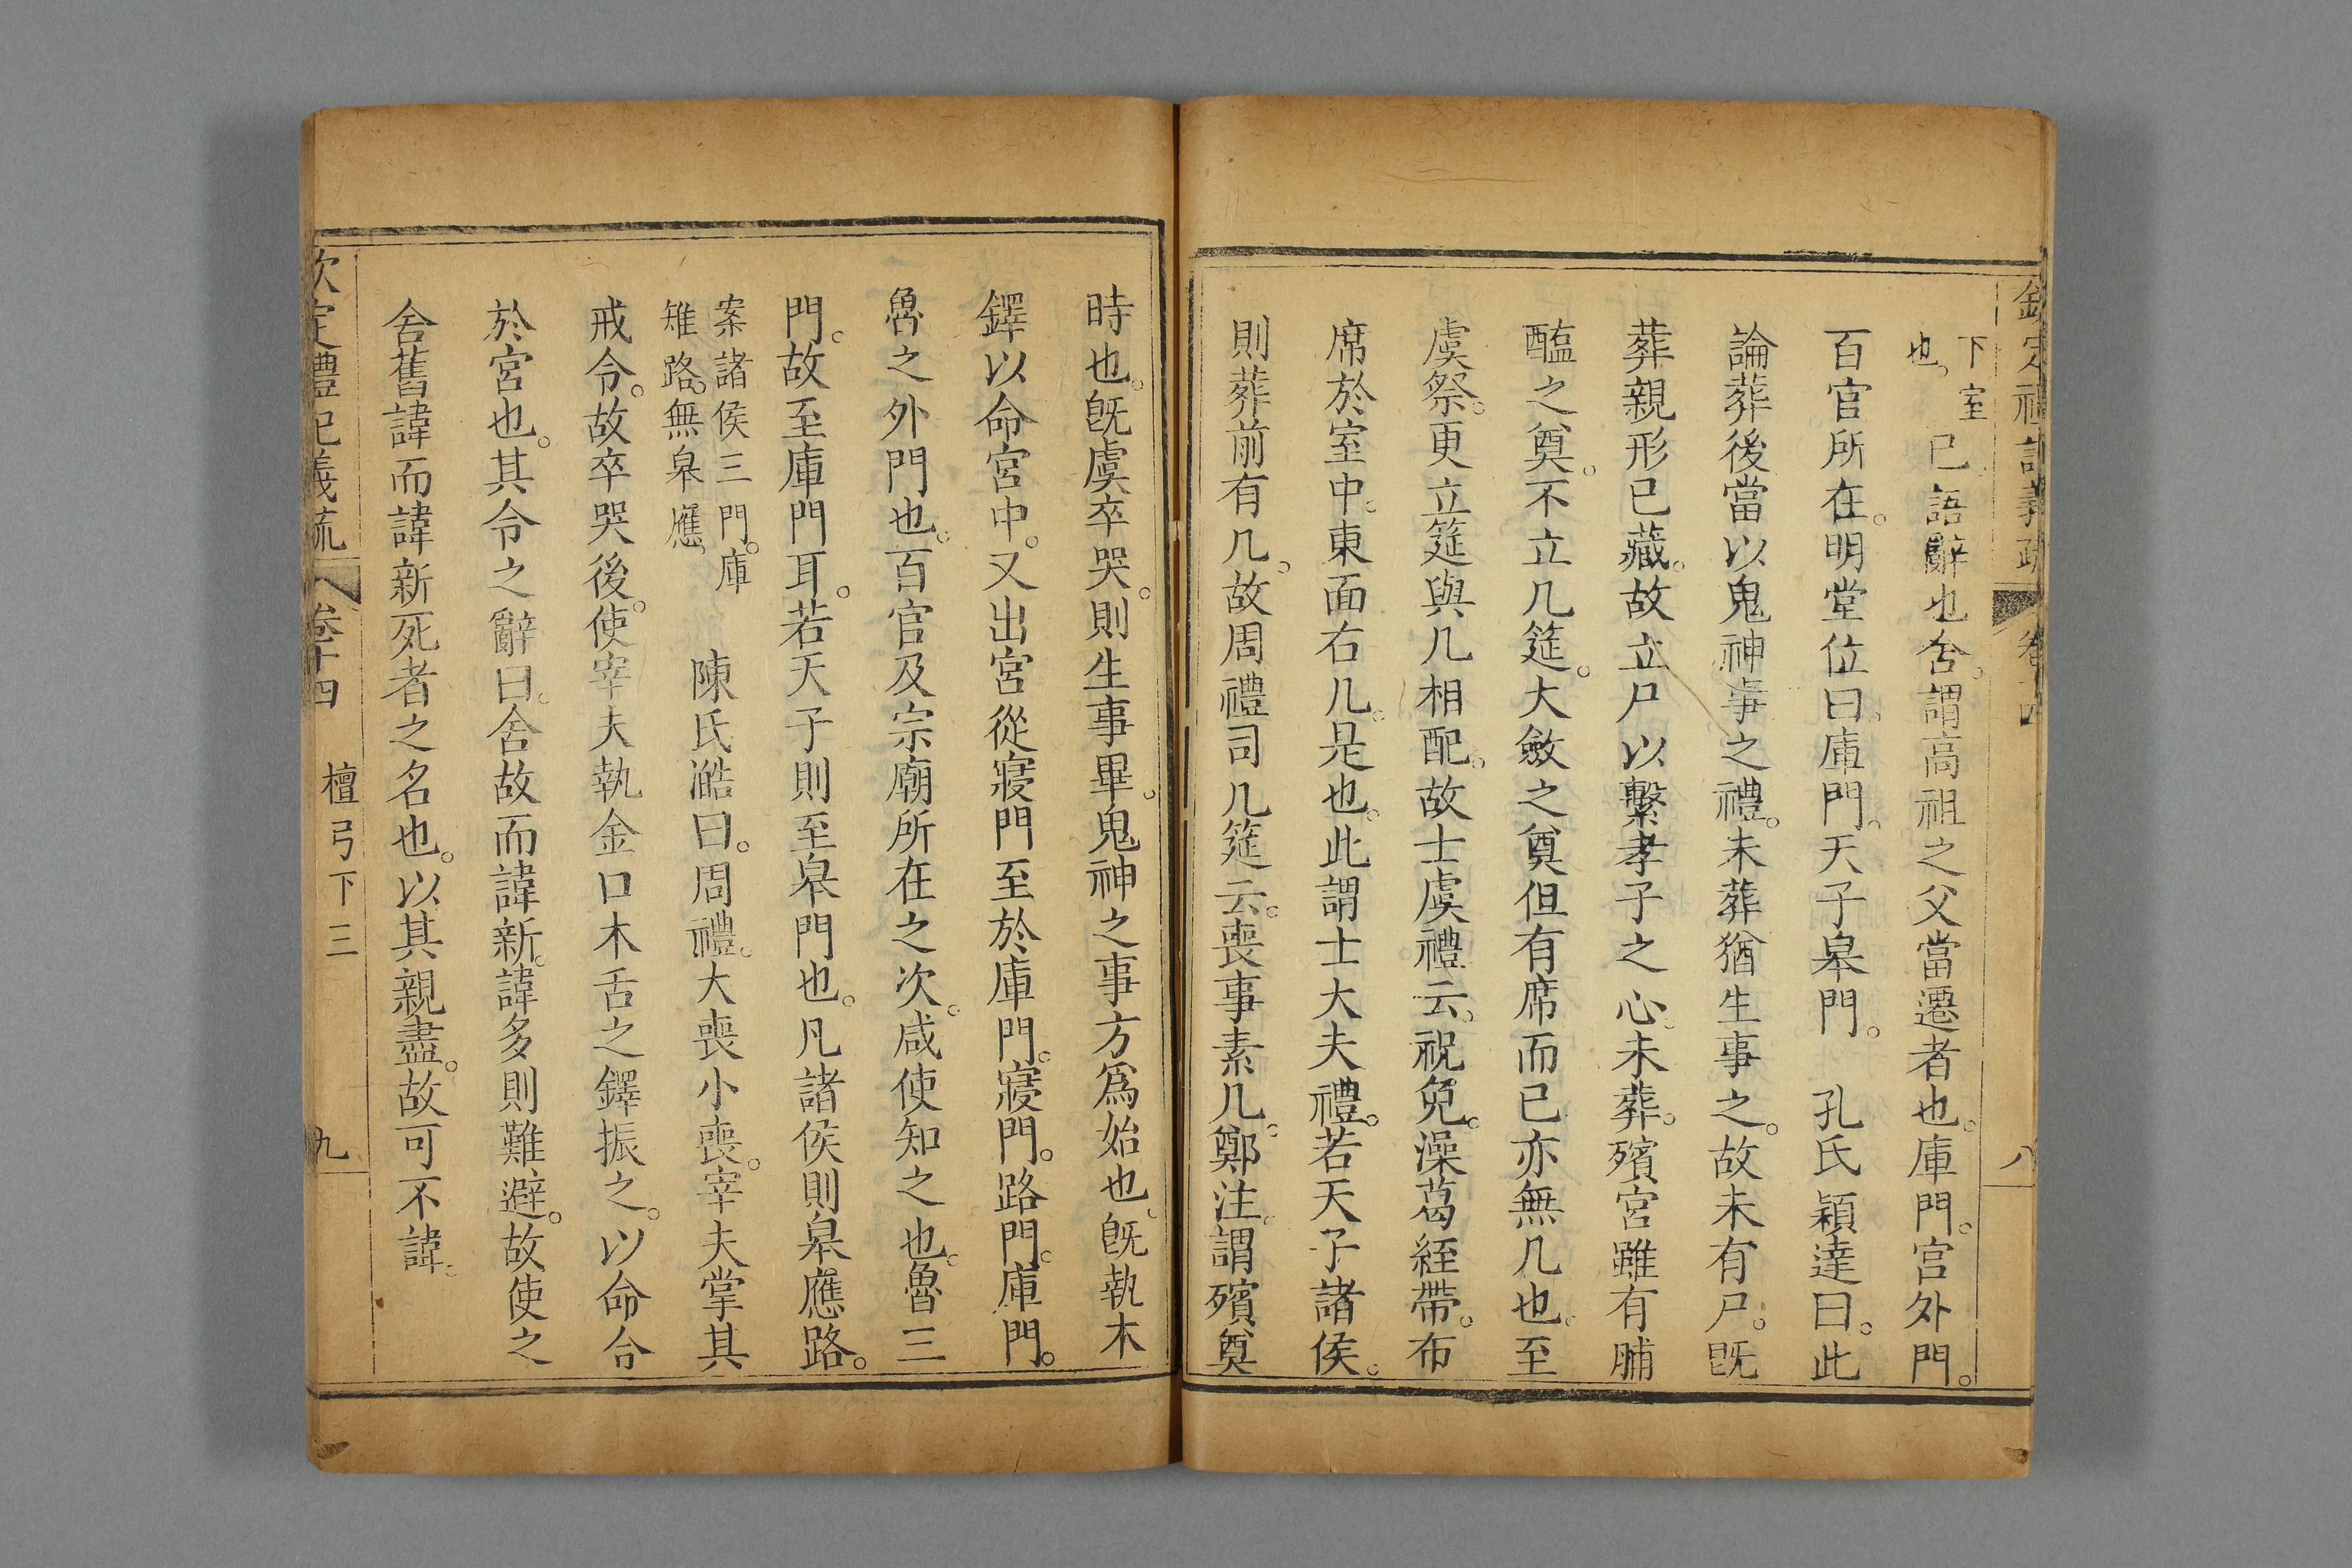 欽定禮記義疏 卷十四 八
下室也。已語辭也舍。謂高祖之父當遷者也。庫門。宫外門。
百官所在。明堂位曰。庫門。天子皋門。 孔氏穎達曰。此
論葬後當以鬼神事之禮。未葬猶生事之。故未有尸。既
葬親形已藏。故立尸以繫孝子之心。未葬。殯宮雖有脯
醢之奠。不立几筵。大斂之奠但有席而已亦無几也。至
虞祭。更立筵與几相配。故士虞禮云。祝免。澡葛絰帶。布
席於室中。東面右几。是也。此謂士大夫禮。若天子諸侯。
則葬前有几。故周禮司几筵云。喪事素几。鄭注。謂殯奠
時也。旣虞卒哭。則生事畢。鬼神之事方爲始也。旣執木
鐸以命宮中。又出宮從寢門至於庫門。寢門。路門。庫門。
魯之外門也。百官及宗廟所在之次。咸使知之也。魯三
門。故至庫門耳。若天子則至皋門也。凡諸侯則皋應路。
案諸侯三門。庫
雉路。無皋應。 陳氏澔曰。周禮。大喪小喪。宰夫掌其
戒令。故卒哭後。使宰夫執金口木舌之鐸振之。以命令
於宮也。其令之辭曰。舍故而諱新。諱多則難避。故使之
舍舊諱而諱新死者之名也。以其親盡。故可不諱。
欽定禮記義疏 卷十四 檀弓下三 九